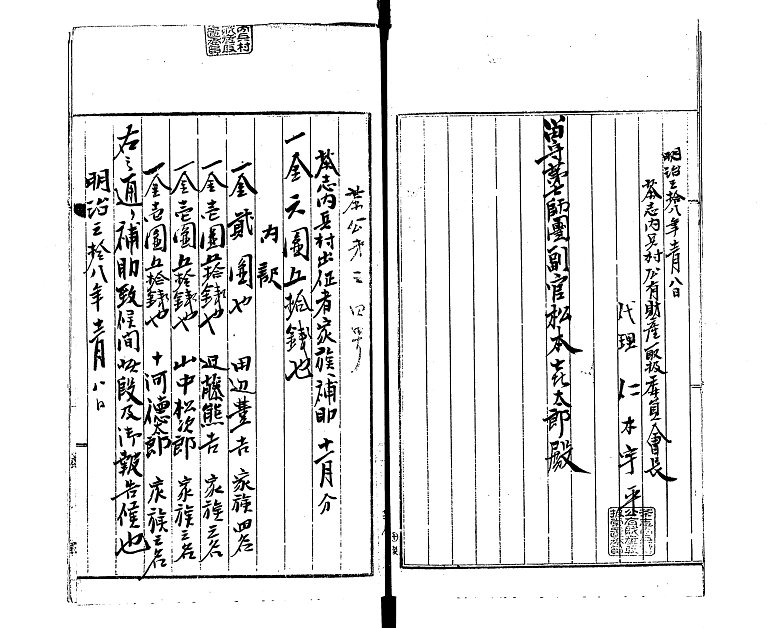 明治三拾八年十二月八日
茶志内兵村公有財産取扱委員會長
代理 仁木宇平
留守第七師團副官松本喜太郎殿
茶公第三四号
茶志内兵村出征者家族補助 十一月分
一金六圓五拾錢也
内訳
一金貳圓也 田辺豊吉 家族四名
一金壱圓五拾錢也 近藤熊吉 家族三名
一金壱圓五拾錢也 山中松次郎 家族三名
一金壱圓五拾錢也 十河德太郎 家族三名
右之通リ補助致候間此段及御報告候也
明治三拾八年十二月八日